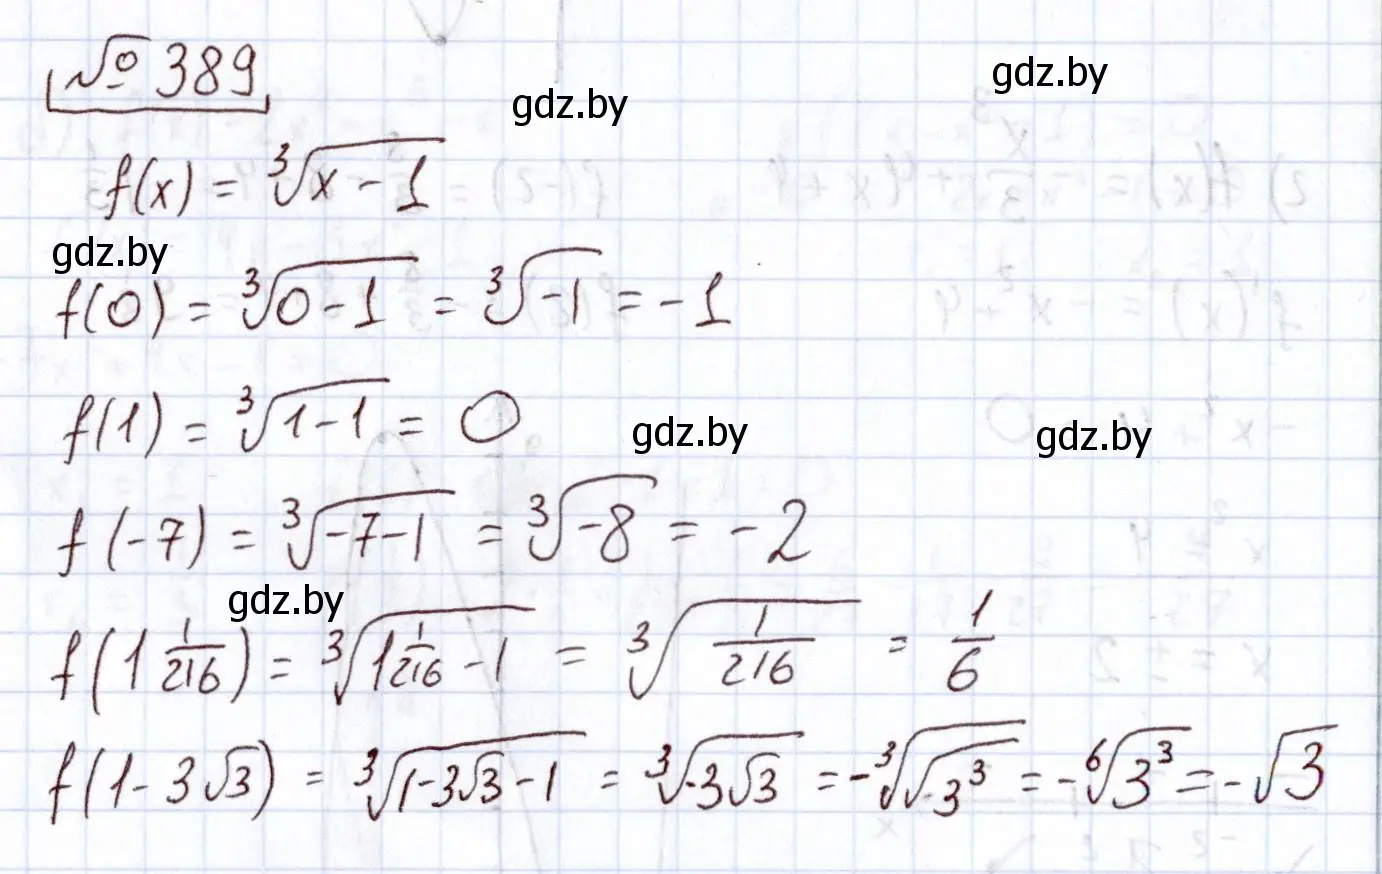 № 389
gdz.by
gdz.by
f(x) = ∛(x - 1)
gdz.by
f(0) = ∛(0 - 1) = ∛(-1) = -1
f(1) = ∛(1 - 1) = 0
gdz.by
gdz.by
f(-7) = ∛(-7 - 1) = ∛(-8) = -2
gdz.by
f(1 1/216) = ∛(1 1/216 - 1) = ∛(1/216) = 1/6
f(1 - 3√3) = ∛(1 - 3√3 - 1) = ∛(-3√3) = -∛(√(-3³)) = -⁶√(3³) = -√3